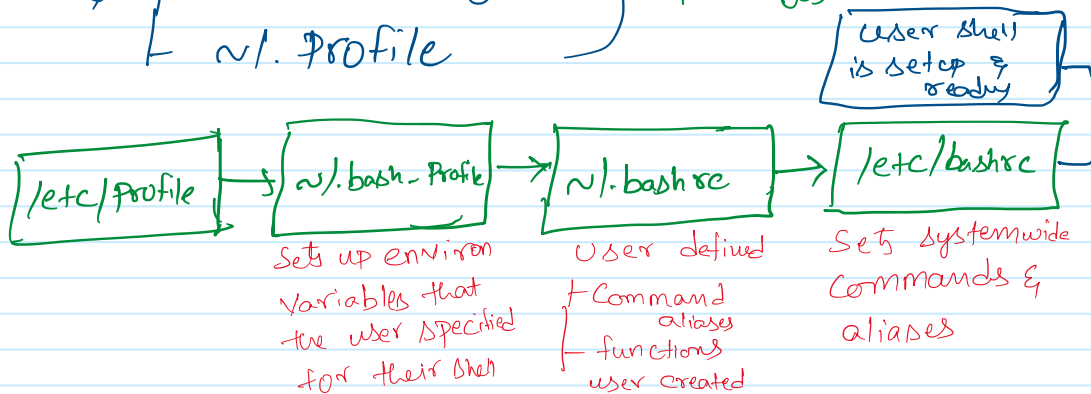 ~/. Profile
User shell
is setup &
ready
/etc/Profile
~/.bash_Profile
~/.bashrc
/etc/bashrc
Sets up environ
variables that
the user specified
for their shell
User defined
Command
aliases
functions
user created
Sets systemwide
Commands &
aliases